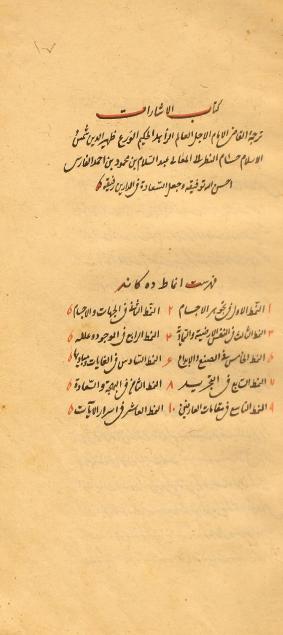 كتاب الاشارات
ترجمة القاضى الامام الاجل العالم الزاهد الحكيم الورع ظهير الدين شمس
الاسلام حسام النظر ابى المعالى عبد السلام بن محمود بن احمد الفارس
احسن الله توفيقه وجعل السعادة فى الدارين رفيقه
فهرست انماط ده كانه
١ النمط الاول فى تجوهر الاجسام ٢ النمط الثانى فى الجهات والاجسام
٣ النمط الثالث فى النفس الارضية والسماوية ٤ النمط الرابع فى الوجود وعلله
٥ النمط الخامس فى الصنع والابداع ٦ النمط السادس فى الغايات ومباديها
٧ النمط السابع فى التجريد ٨ النمط الثامن فى البهجة والسعادة
٩ النمط التاسع فى مقامات العارفين ١٠ النمط العاشر فى اسرار الايات